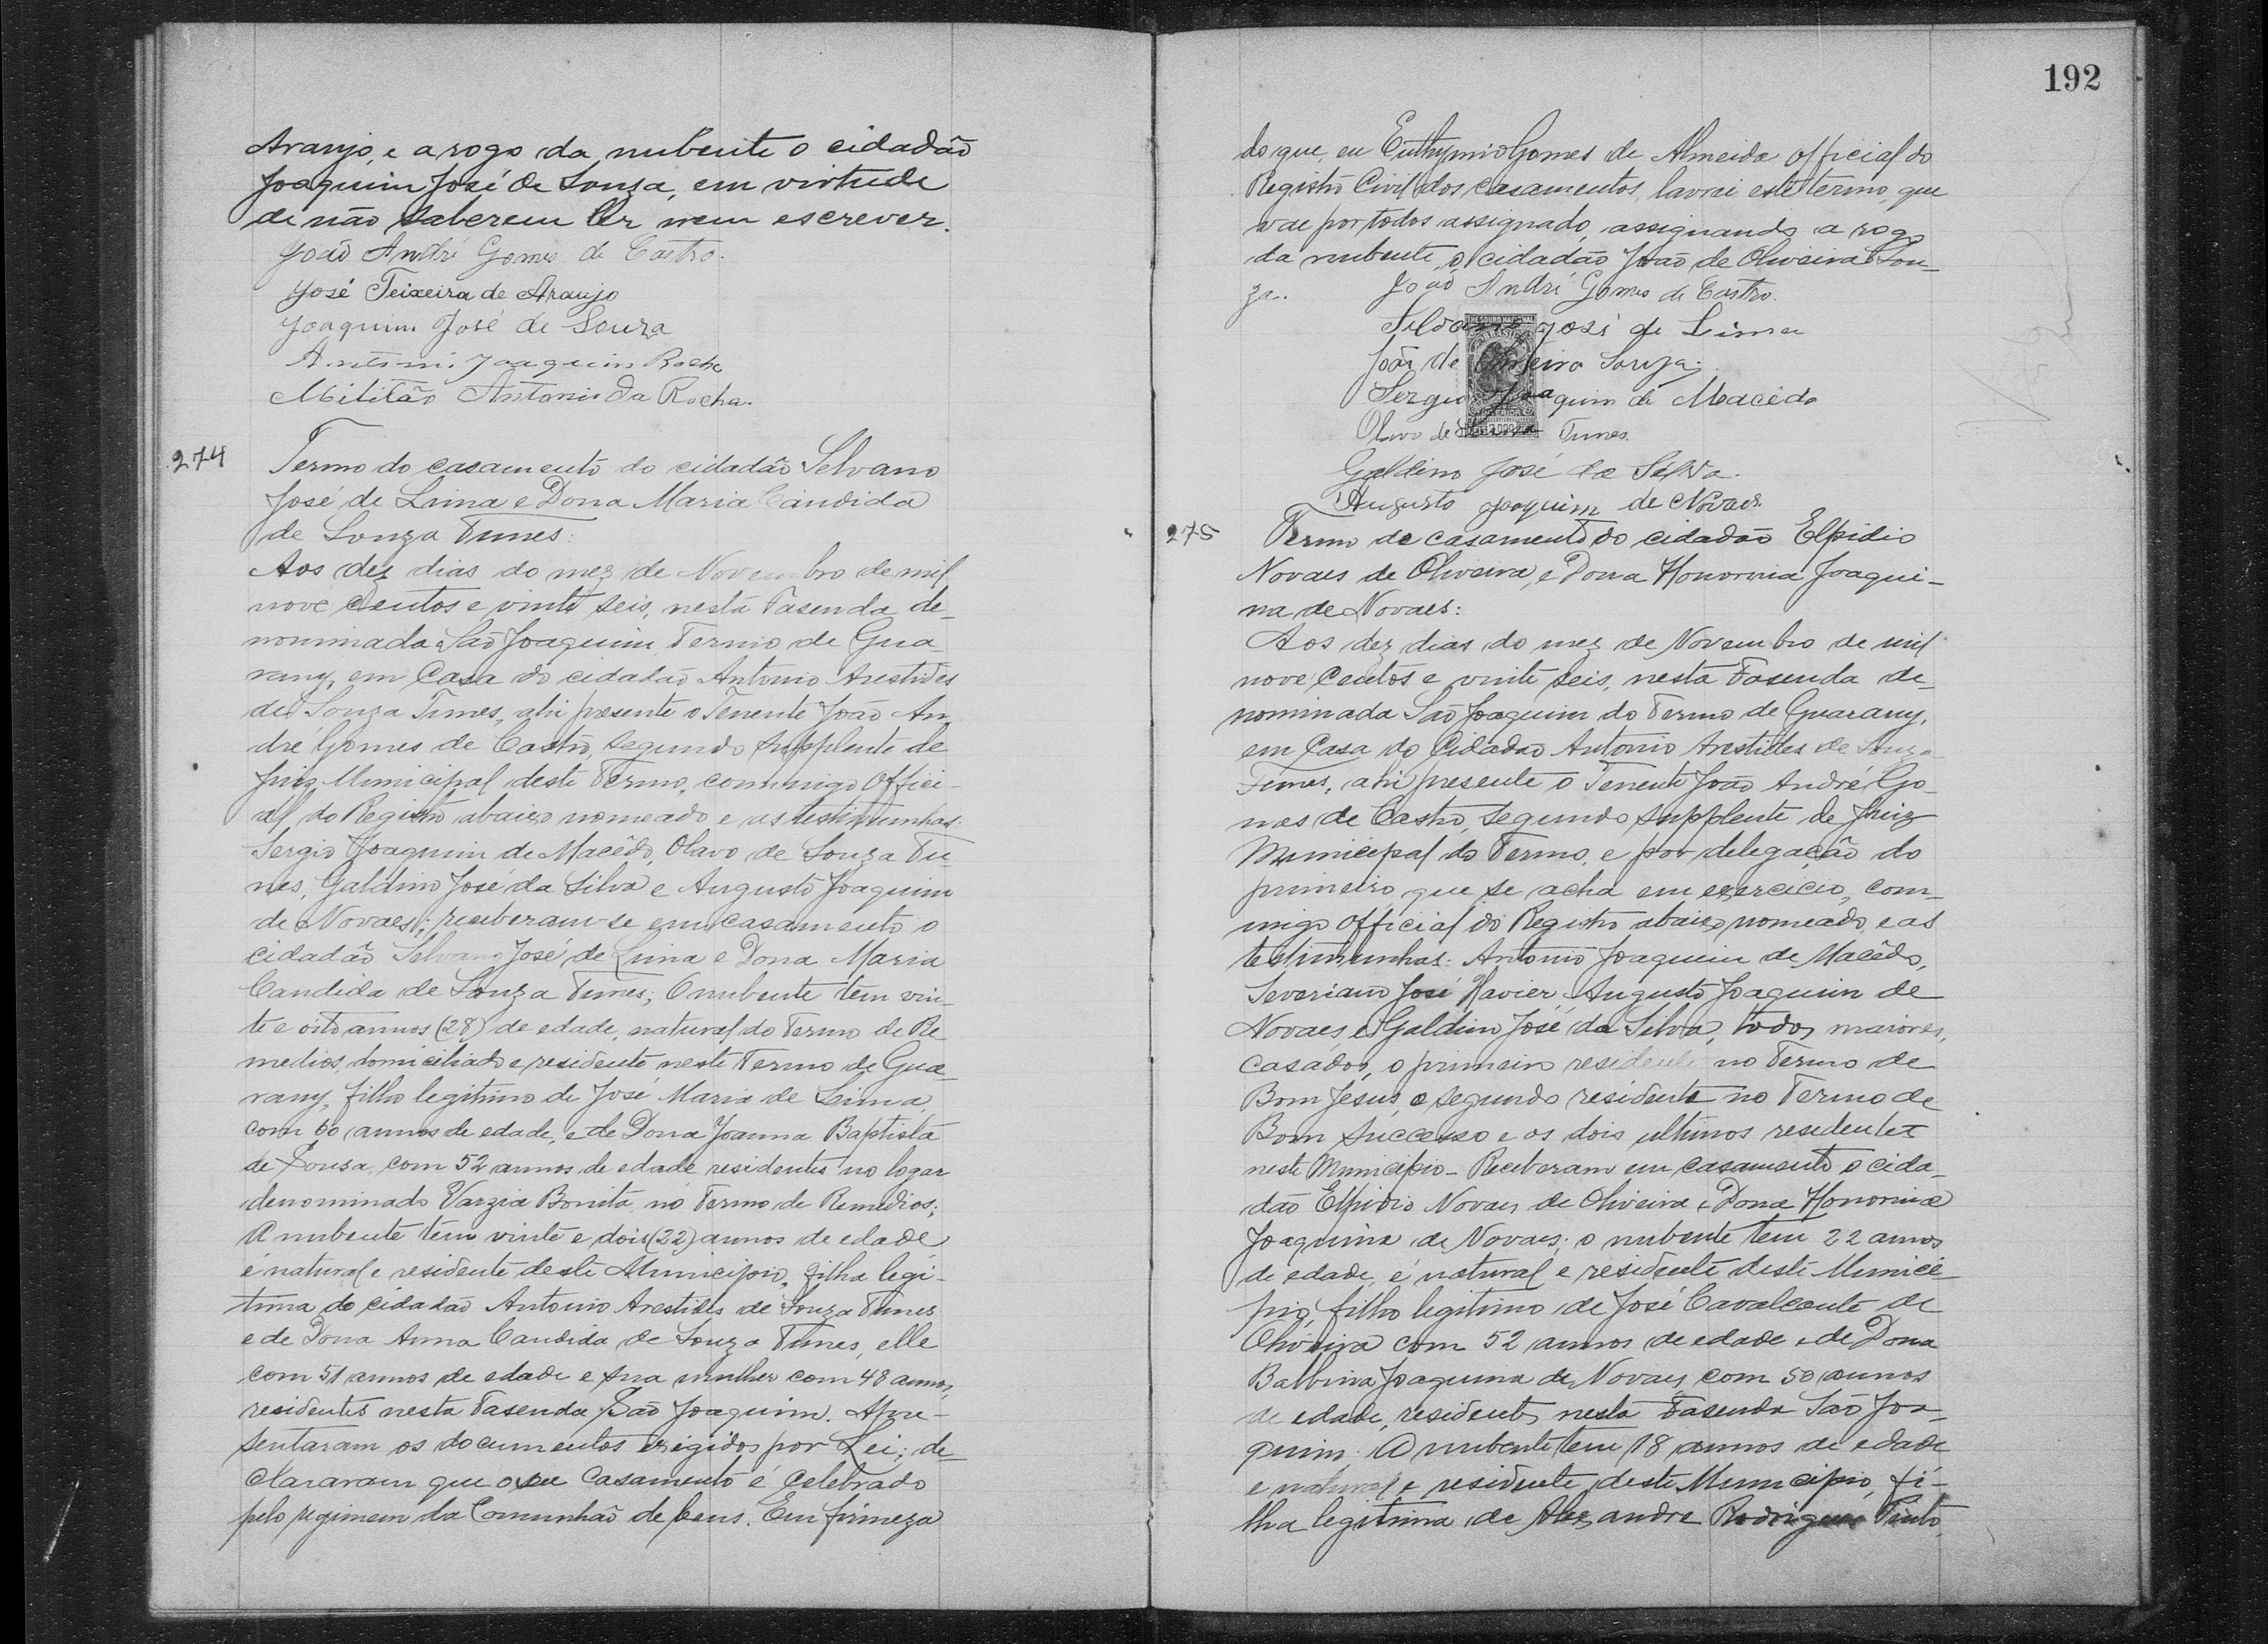 Araujo, e a rogo da nubente o cidadão
Joaquim José de Souza, em virtude
de não saberem ler nem escrever.
João André Gomes de Castro.
José Teixeira de Araujo
Joaquim José de Souza
Antonio Joaquim Rocha
Militão Antonio da Rocha.
274
Termo do casamento do cidadão Selvano
José de Lima e Dona Maria Candida
de Souza Tunes:
Aos dez dias do mez de Novembro de mil
nove centos e vinte seis, nesta Fasenda de-
nominada São Joaquim, Termo de Gua-
rany, em Casa do cidadão Antonio Arestides
de Souza Tunes, ahi presente o Tenente João An-
dré Gomes de Castro, segundo supplente de
Juiz Municipal deste Termo, commigo Offici-
al do Registro abaixo nomeado e as testimunhas
Sergio Joaquim de Macêdo, Olavo de Souza Tu-
nes, Galdino José da Silva e Augusto Joaquim
de Novaes; receberam-se em casamento o
cidadão Selvano José de Lima e Dona Maria
Candida de Souza Tunes; O nubente tem vin-
te e oito annos (28) de edade, natural do Termo de Re-
medios, domiciliado e residente neste Termo de Gua-
rany, filho legitimo de José Maria de Lima,
com 60 annos de edade, e de Dona Joanna Baptista
de Sousa, com 52 annos de edade residentes no logar
denominado Varzia Bonita no Termo de Remedios;
A nubente tem vinte e dois (22) annos de edade
é natural e residente deste Municipio, filha legi-
tima do cidadão Antonio Arestides de Souza Tunes
e de Dona Anna Candida de Souza Tunes, elle
com 51 annos de edade e sua mulher com 48 annos,
residentes nesta Fasenda São Joaquim. Apre-
sentaram os documentos exigidos por Lei; de-
clararam que o seu Casamento é Celebrado
pelo regimem da Comunhão de bens. Em firmeza
192
do que, eu Euthymio Gomes de Almeida official do
Registro Civil dos casamentos, lavrei este termo, que
vae por todos assignado, assignando a rogo
da nubente o cidadão João de Oliveira Sou-
za..
João André Gomes de Castro.
Silvano José de Lima
João de Oliveira Souza
Sergio Joaquim de Macêdo
Olavo de Souza Tunes.
Galdino José da Silva.
Augusto Joaquim de Novaes.
275
Termo de casamento do cidadão Elpidio
Novaes de Oliveira, e Dona Honorina Joaqui-
na de Novaes:
Aos dez dias do mez de Novembro de mil
nove centos e vinte seis, nesta Fasenda de-
nominada São Joaquim do Termo de Guarany,
em Casa do Cidadão Antonio Arestides de Souza
Tunes, ahi presente o Tenente João André Go-
mes de Castro, segundo supplente de Juiz
Municipal do Termo, e por delegação do
primeiro, que se acha em exercicio, com-
migo official do Registro abaixo nomeado, e as
testimunhas: Antonio Joaquim de Macêdo,
Severiano José Xavier, Augusto Joaquim de
Novaes e Galdino José da Silva, todos maiores,
casados, o primeiro residente no Termo de
Bom Jesus, o segundo residente no Termo de
Bom Successo e os dois ultimos residentes
neste Municipio - Receberam em casamento o cida-
dão Elpidio Novaes de Oliveira e Dona Honorina
Joaquina de Novaes; o nubente tem 22 annos
de edade, é natural e residente deste Munici-
pio, filho legitimo de José Cavalcante de
Oliveira com 52 annos de edade e de Dona
Balbina Joaquina de Novaes, com 50 annos
de edade, residentes nesta Fasenda São Joa-
quim. A nubente tem 18 annos de edade
e natural e residente deste Municipio, fi-
lha legitima de Alexandre Rodrigues Pinto,